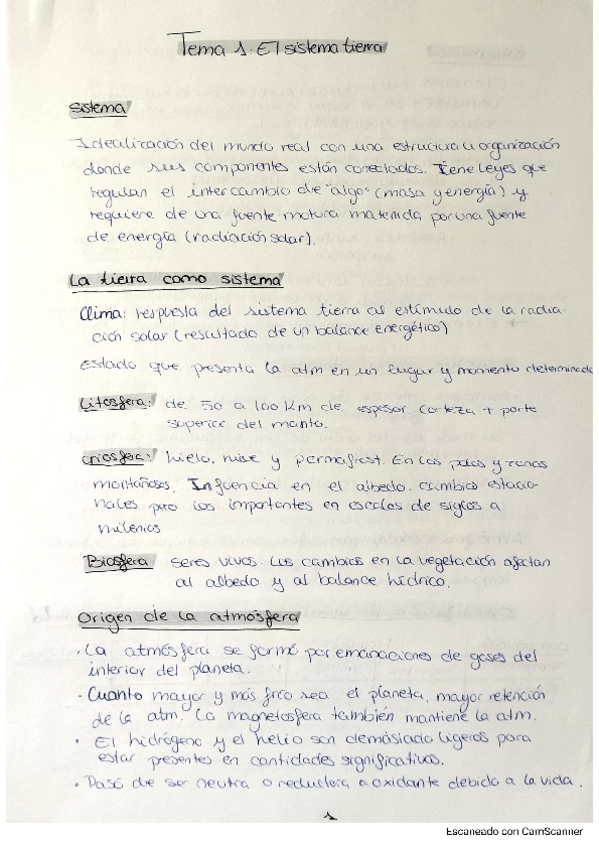 Tema 1. El sistema tierra
Sistema
Idealización del mundo real con una estructura u organización
donde sus componentes están conectados. Tiene leyes que
regulan el intercambio de "algo" (masa y energía) y
requiere de una fuente motora matenida por una fuente
de energía (radiación solar).
La tierra como sistema
Clima: respuesta del sistema tierra al estímulo de la radia-
ción solar (resultado de un balance energético)
Estado que presenta la atm en un lugar y momento determinado
Litosfera: de 50 a 100 Km de espesor. Corteza + parte
superior del manto.
criosfera: hielo, nieve y permafrost. En los polos y zonas
montañosas. Influencia en el albedo. cambios estacio-
nales pero los importantes en escalas de siglos a
milenios
Biosfera seres vivos. Los cambios en la vegetación afectan
al albedo y al balance hídrico.
Origen de la atmósfera
· La atmósfera se formó por emanaciones de gases del
interior del planeta.
· Cuanto mayor y más frío sea el planeta, mayor retención
de la atm. La magnetosfera también mantiene la atm.
· El hidrógeno y el helio son demasiado ligeros para
estar presentes en cantidades significativas.
· Pasó de ser neutra o reductora a oxidante debido a la vida.
1
Escaneado con CamScanner